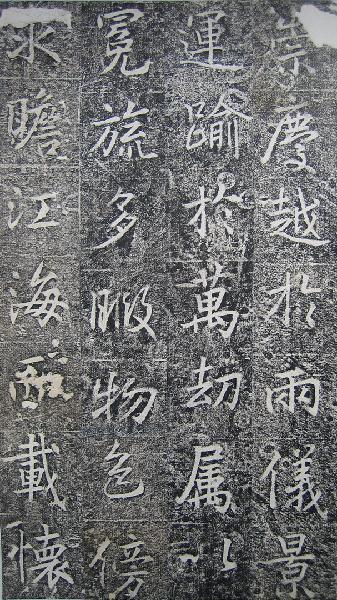 崇慶越於兩儀景
運踰於萬劫属以
冕旒多暇物色傍
求瞻江海載懷